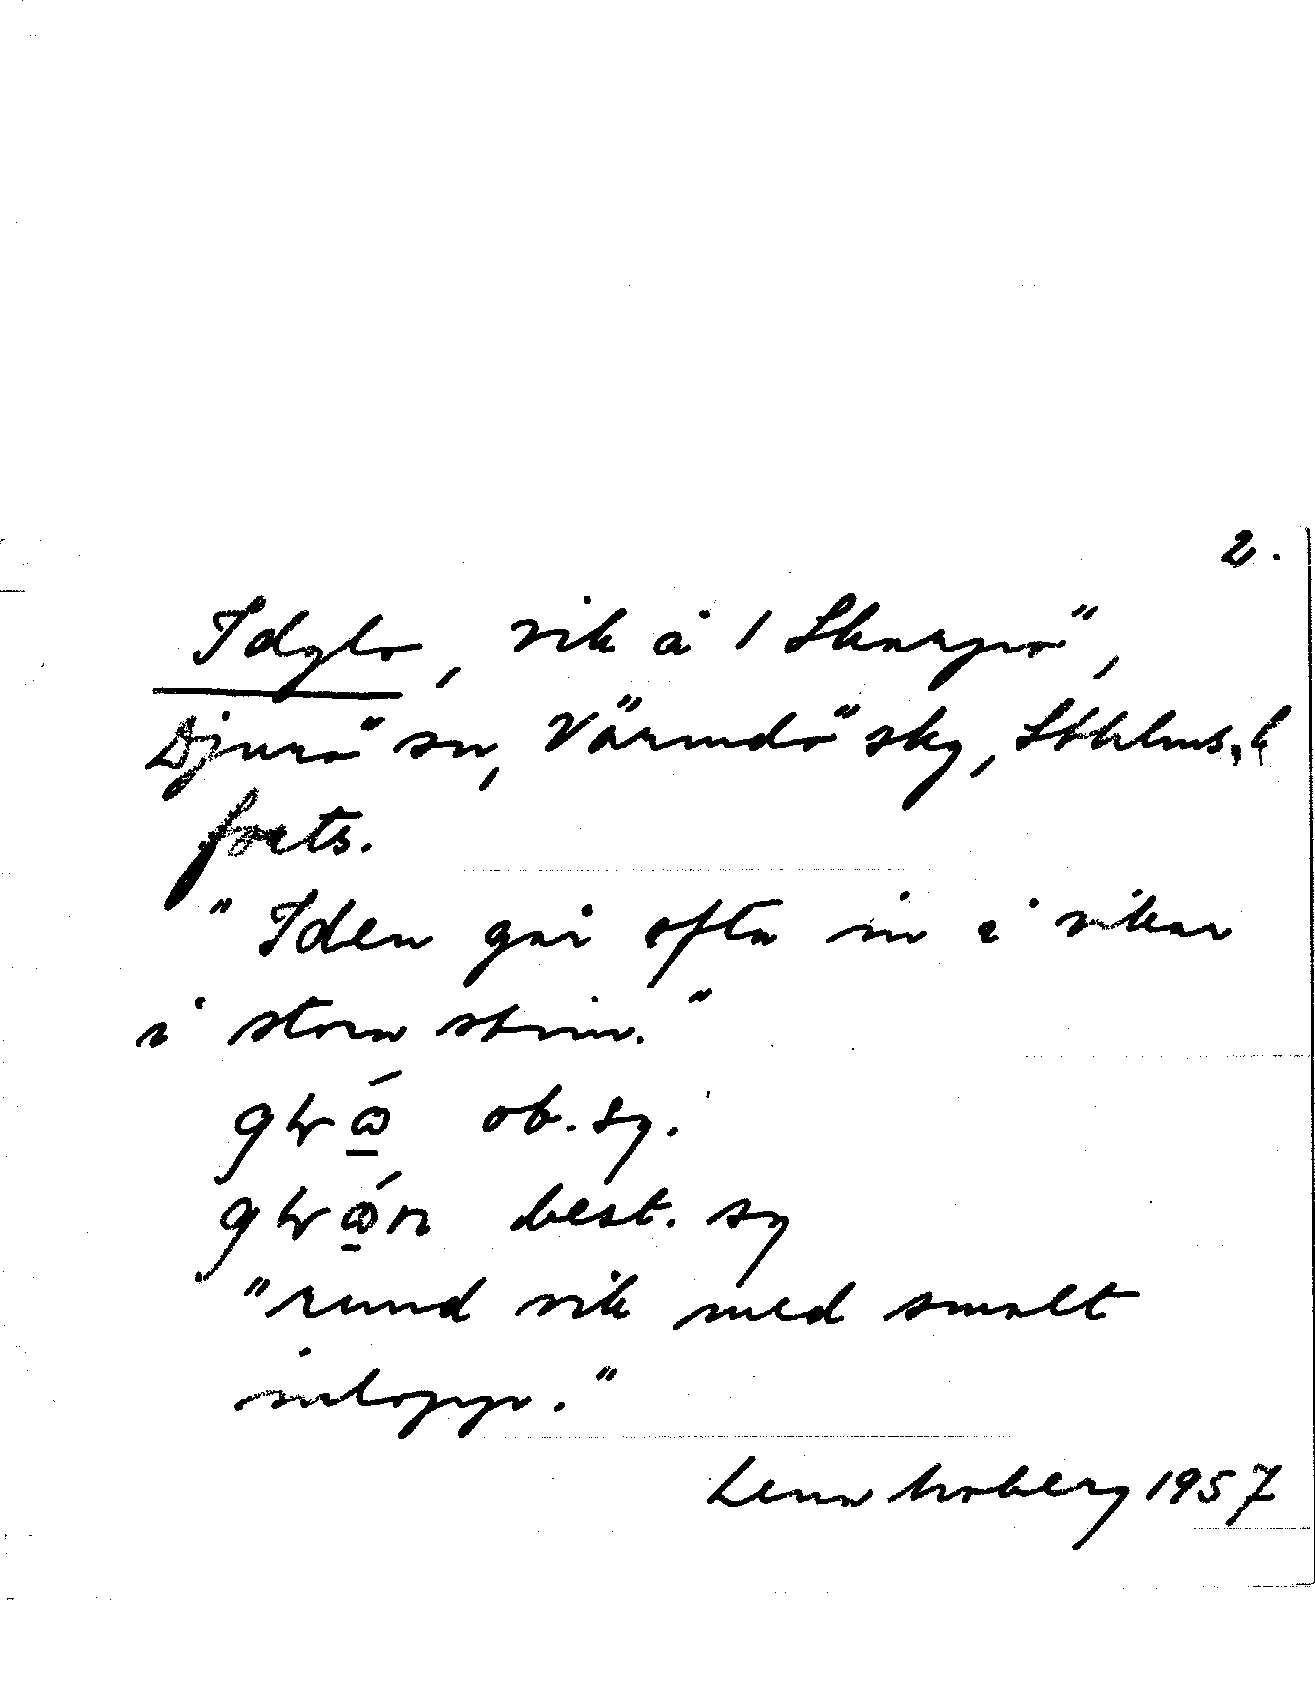 2.
Idglo, vik å / Skarpö,
Djurö sn, Värmdö sky, Sthlms. l
forts.
"Iden går ofta in i vikar
i stora stim."
ob. sg.
best. sg
"rund vik med smalt
inlopp."
Lena Moberg 1957